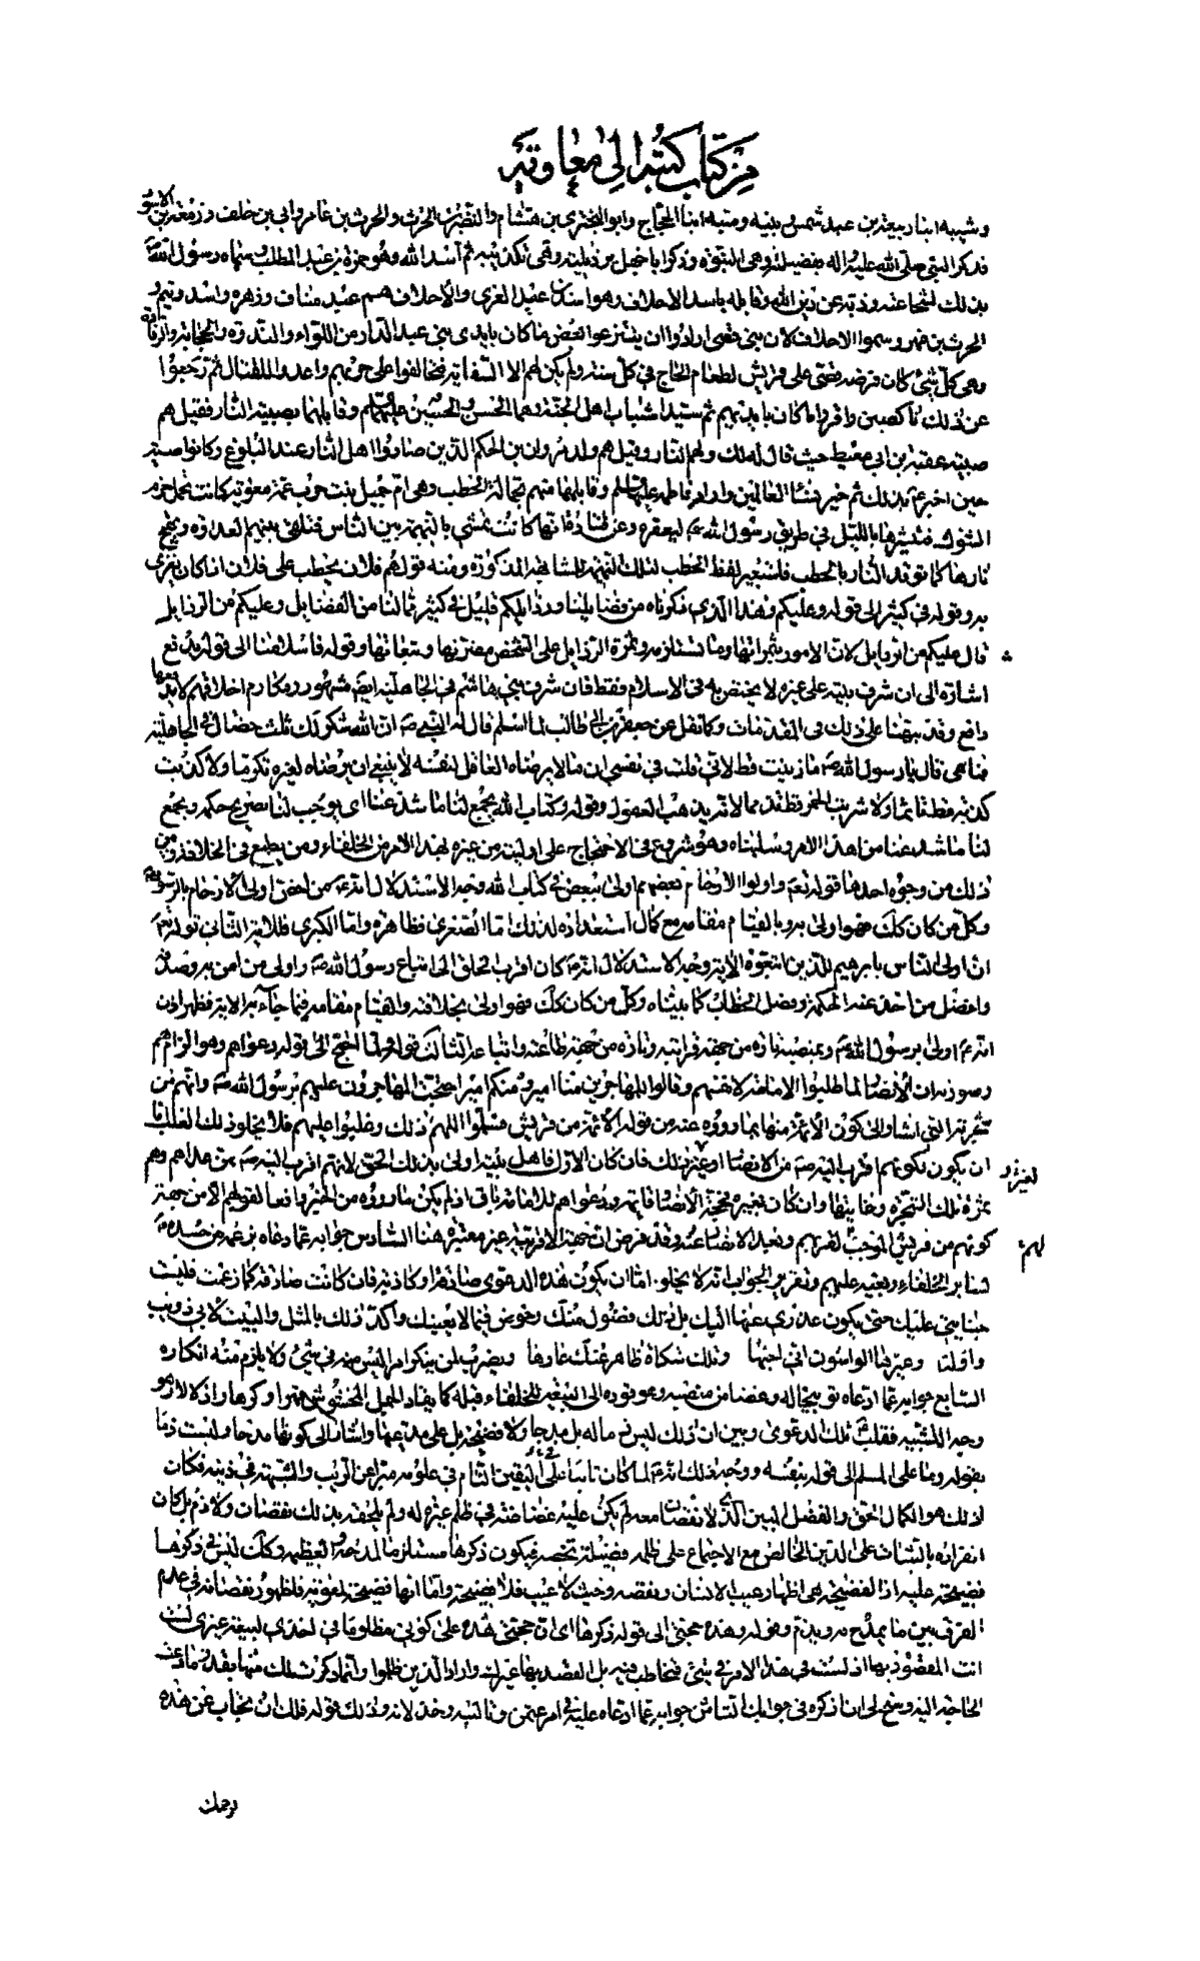 من كتاب كتبه الى معاوية
وشيبه ابنا ربيعة بن عبد شمس ونبيه ومنبه ابنا الحجاج وابو البختري بن هشام والنضر بن الحرث والحرث بن عامر وابي بن خلف وزمعة بن الاسود
فذكر النبي صلى الله عليه واله بفضيلته وهي النبوة وذكر ابا جهل برذيلته وهي تكذيبه ثم اسد الله وهو حمزة بن عبد المطلب وسماه رسول الله ص
بذلك لشجاعته وذبه عن دين الله وقابله باسد الاحلاف وهو اسد بن عبد العزى والاحلاف هم عبد مناف وزهره واسد وتيم و
الحرث بن فهر وسموا الاحلاف لان بني قصى ارادوا ان ينتزعوا بعض ما كان بايدى بني عبد الدار من اللواء والندوه والحجابة والرفادة
وهي كل شئ كان فرضه قصى على قريش لطعام الحاج في كل سنة ولم يكن لهم الا السقاية فتحالفوا على حربهم واعدوا للقتال ثم رجعوا
عن ذلك ناكصين واقروا ما كان بايديهم ثم سيدا شباب اهل الجنة وهما الحسن والحسين عليهما السلم وقابلهما بصبية النار فقيل هم
صبية عقبة بن ابي معيط حيث قال له لك ولهم النار وقيل هم ولد مرون بن الحكم الذين صاروا اهل النار عند البلوغ وكانوا صبية
حين اخبر ع بذلك ثم خير نساء العالمين واراد فاطمة عليها السلم وقابلها منهم بحمالة الحطب وهي ام جميل بنت حرب عمة معوية كانت تحمل حزم
الشوك فتنثرها بالليل في طريق رسول الله ص ليعقره وعن قتادة انها كانت تمشي بالنميمة بين الناس فتلقى بينهم العداوه وتهيج
نارها كما توقد النار بالحطب فاستعير لفظ الحطب لتلك النميمة للمشابهة المذكوره ومنه قولهم فلان يحطب على فلان اذا كان يغرى
به وقوله في كثير الى قوله وعليكم وهذا الذي ذكرناه من فضايلنا ورذايلكم قليل في كثير مما لنا من الفضايل وعليكم من الرذايل
قال عليكم من الرذايل لان الامور بثمراتها وما تستلزمه وثمرة الرذايل على الشخص مضرتها وتبعاتها وقوله فاسلامنا الى قوله يدفع
اشارة الى ان شرف بيته على غيره لا يختص به في الاسلام فقط فان شرف بني هاشم في الجاهلية ايضا مشهور ومكارم اخلاقهم لا يدفعها
دافع وقد نبهنا على ذلك في المقدمات وكما نقل عن جعفر بن ابي طالب لما اسلم قال له النبي ص ان الله شكر لك ثلث خصال في الجاهلية
فما هي قال يا رسول الله ص ما زنيت قط لاني قلت في نفسي ان ما لا يرضاه العاقل لنفسه لا ينبغي ان يرضاه لغيره تكرما ولا كذبت
كذبة قط تاثما ولا شربت الخمر قط تذمما لانه يذهب العقول وقوله وكتاب الله يجمع لنا ما شذ عنا اى يوجب لنا بصريح حكمه ويجمع
لنا ما شذ عنا من هذا الامر وسلبناه وهو شروع في الاحتجاج على اولويته من غيره بهذا الامر من الخلفاء ومن يطمع في الخلافة وبين
ذلك من وجوه احدها قوله تعم واولوا الارحام بعضهم اولى ببعض في كتاب الله وجه الاستدلال انه ع من اخص اولى الارحام بالرسول ص
وكل من كان كك فهو اولى به وبالقيام مقامه مع كمال استعداده لذلك اما الصغرى فظاهره واما الكبرى فللاية الثاني قوله تعم
ان اولى الناس بابرهيم للذين اتبعوه الاية وجه الاستدلال انه ع كان اقرب الخلق الى اتباع رسول الله ص واولى من امن به وصدقه
وافضل من اخذ عنه الحكمة وفصل الخطاب كما بيناه وكل من كان كك فهو اولى بخلافته والقيام مقامه فيما جاء به للاية فظهر اذن
انه ع اولى برسول الله ص وبمنصبه تارة من جهة قرابته وتارة من جهة طاعته واتباعه الثالث قوله ولما احتج الى قوله دعواهم وهو الزام لهم
وصورته ان الانصار لما طلبوا الامامة لانفسهم وقالوا للمهاجرين منا امير ومنكم امير احتجت المهاجرون عليهم برسول الله ص وانهم من
شجرته التي اشار الى كون الائمة منها بما رووه عنه من قوله الائمة من قريش فسلموا اللهم ذلك وغلبوا عليهم فلا يخلو ذلك الغلب اما
ان يكون لكونهم اقرب الى النبي ص من الانصار او لغير ذلك فان كان الاول فاهل بيته اولى بذلك الحق لانهم اقرب اليه ص ممن عداهم وهم
لغيره و
ثمرة تلك الشجرة وغايتها وان كان بغيره فحجة الانصار قائمة ودعواهم للامامة باق اذ لم يكن ما رووه من الخبر دافعا لقولهم الا من جهة
كونهم من قريش الموجب لقربهم وبعد الانصار عنه وقد فرض ان جهة الاقربية غير معتبرة هنا السادس جوابه عما دعاه بزعمه من حسده ع
لهم
لسابر الخلفاء وبغيه عليهم وتقرير الجواب انه لا يخلو اما ان يكون هذه الدعوى صادقة او كاذبة فان كانت صادقة كما زعمت فليست
جنايتي عليك حتى يكون عذري عنها اليك بل ذلك فضول منك وخوض فيما لا يعنيك واكد ذلك بالمثل والبيت لابي ذويب
واوله وعيرها الواشون اني احبها وتلك شكاة ظاهر عنك عارها ويضرب لمن ينكر امرا ليس منه في شئ ولا يلزم منه انكاره
السابع جوابه عما ادعاه توبيخا له وغضا من منصبه وهو قوده الى البيعة للخلفاء قبله كما يقاد الجمل المخشوش قهرا وكرها واذلالا وهو
وجه المشبه فقلب ع تلك الدعوى وبين ان ذلك ليس ذما له بل مدحا ولا فضيحة بل على مدعيها واشار الى كونها مدحا وليست ذما
بقوله وما على المسلم الى قوله بنفسه ووجه ذلك انه ع لما كان ثابتا على اليقين التام في علومه مبرا عن الريب والشبهة في دينه فكان
لذلك هو الكمال الحق والفضل المبين الذي لا نقصان معه لم يكن عليه غضاضة في ظلم غيره له ولم يلحقه بذلك نقصان ولا ذم بل كان
انفراده بالثبات على الدين الخالص مع الاجتماع على ظلمه فضيلة تخصه فيكون ذكرها مستلزما لمدحه وتعظيمه وكك ليس في ذكرها
فضيحة عليه اذ الفضيحة هي اظهار عيب الانسان ونقصه وحيث لا عيب فلا فضيحة واما انها فضيحة لمعوية فلظهور نقصانه في عدم
الفرق بين ما يمدح به ويذم وقوله وهذه حجتي الى قوله ذكرها اى ان حجتي هذه على كوني مظلوما في اخذى لبيعة غيرى لست
انت المقصود بها اذ لست في هذا الامر في شئ فتخاطب فيه بل القصد بها غيرك واراد الذين ظلموا وانما ذكرت لك منها بقدر ما دعت
الحاجة اليه وسنح لي ان اذكره في جوابك الثامن جوابه عما ادعاه عليه في امر عثمن وتاليبه وخذلانه وذلك قوله فلك ان تجاب عن هذه
لرحمك